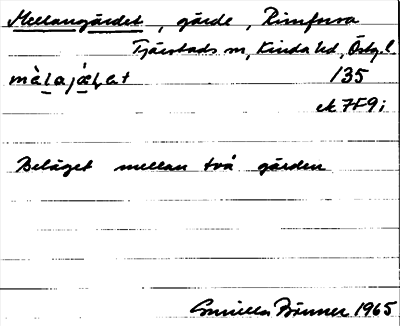 Mellangärdet, gärde, Rimforsa
Tjärstads sn, Kinda hd, Östg.l.
135
ek 7F9i
Beläget mellan två gärden
Gunilla Börner 1965